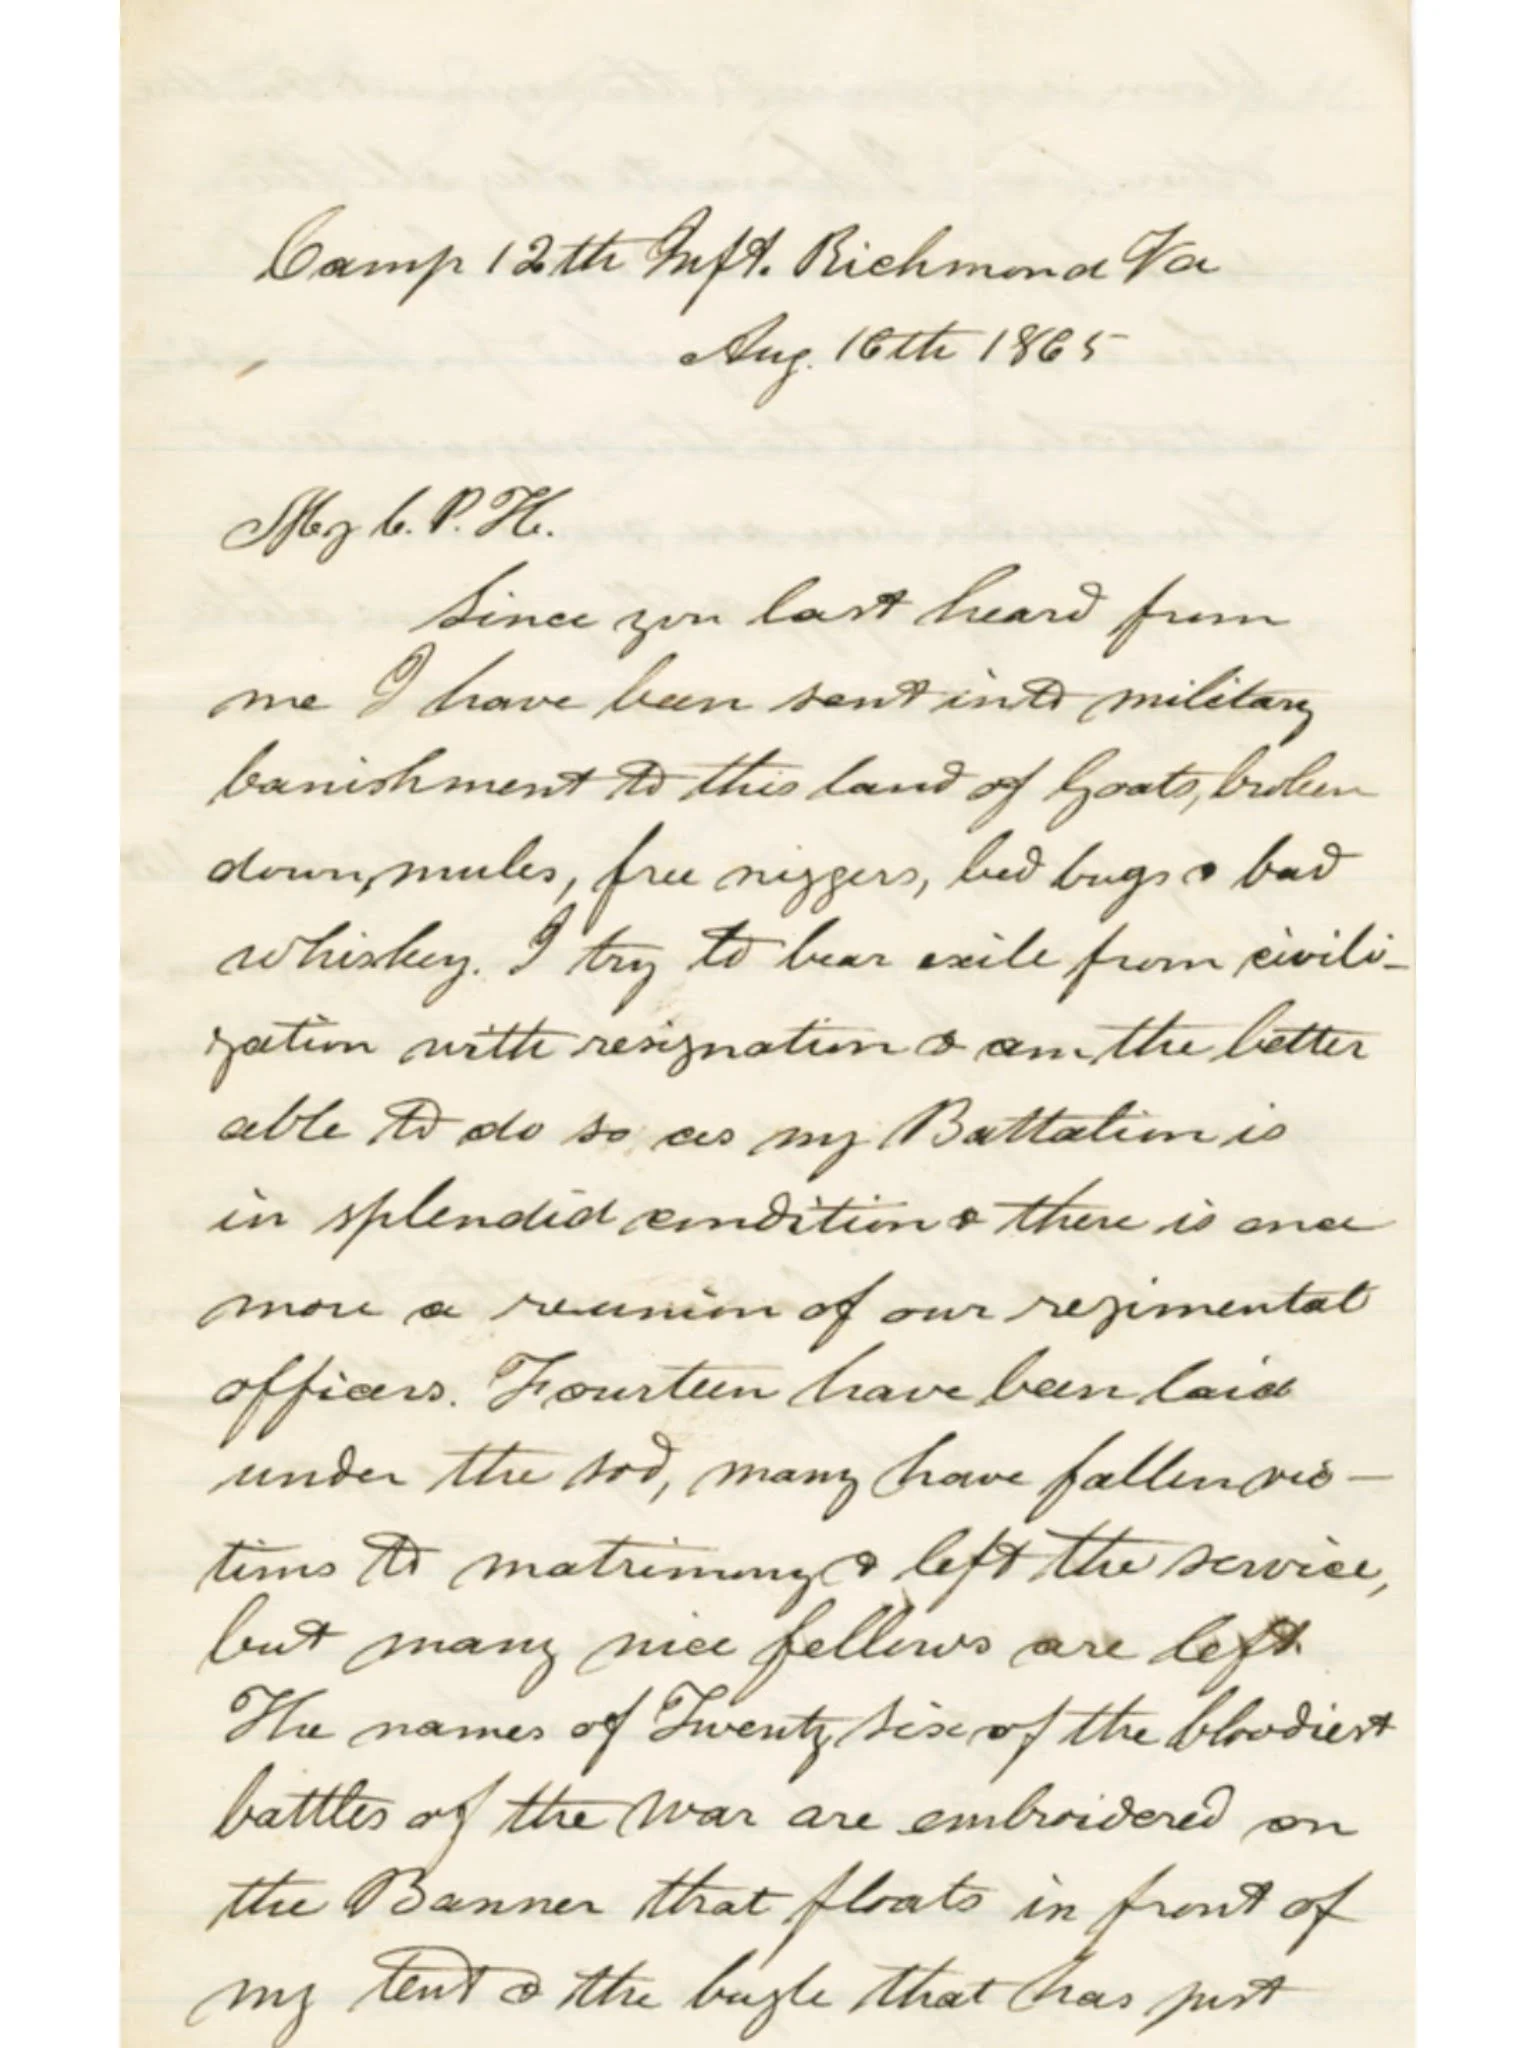 Camp 12th Inft. Richmond Va
Aug. 16th 1865
My C. P. H.
Since you last heard from
me I have been sent into military
banishment to this land of Goats, broken
down, mules, free niggers, bed bugs & bad
whiskey. I try to bear exile from civili-
zation with resignation & am the better
able to do so as my Battalion is
in splendid condition & there is once
more a reunion of our regimental
officers. Fourteen have been laid
under the sod, many have fallen vic-
tims to matrimony & left the service,
but many nice fellows are left.
The names of Twenty six of the bloodiest
battles of the war are embroidered on
the Banner that floats in front of
my tent & the bugle that has just